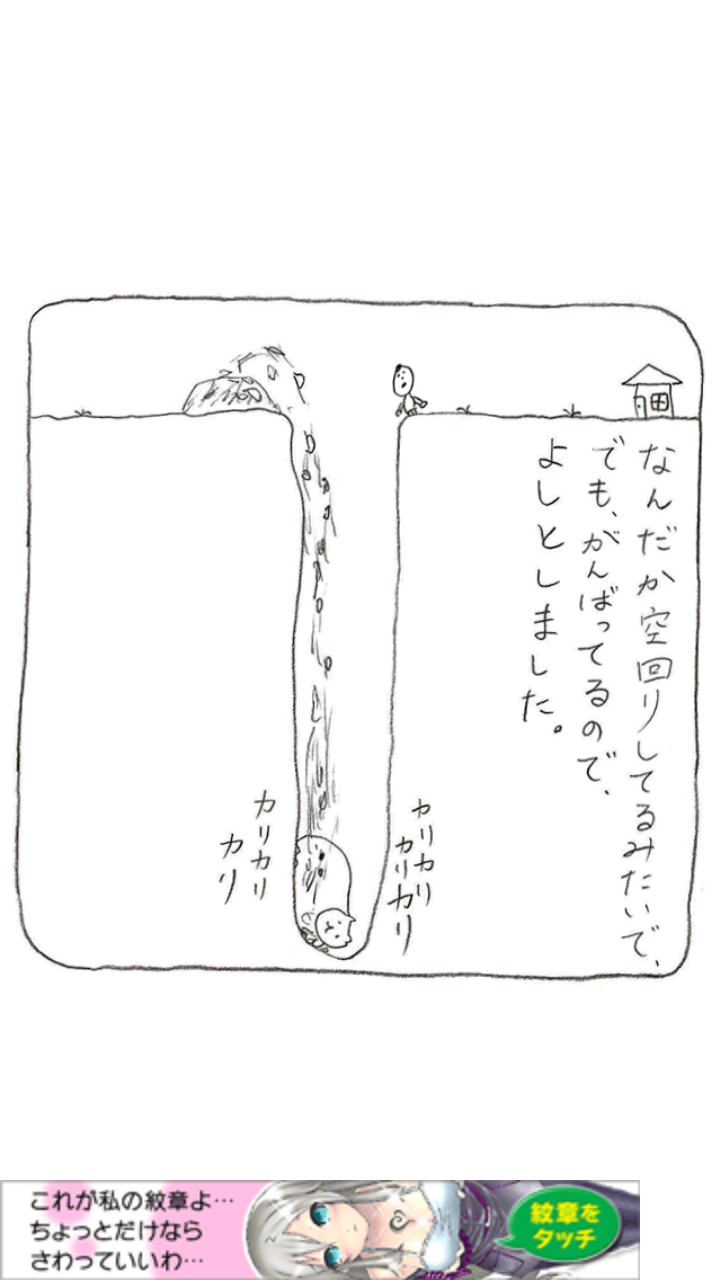 なんだか空回りしてるみたいで、
でも、がんばってるので、
よしとしました。
カリカリ
カリカリ
カリカリ
カリ
これが私の紋章よ…
ちょっとだけなら
さわっていいわ…
紋章を
タッチ